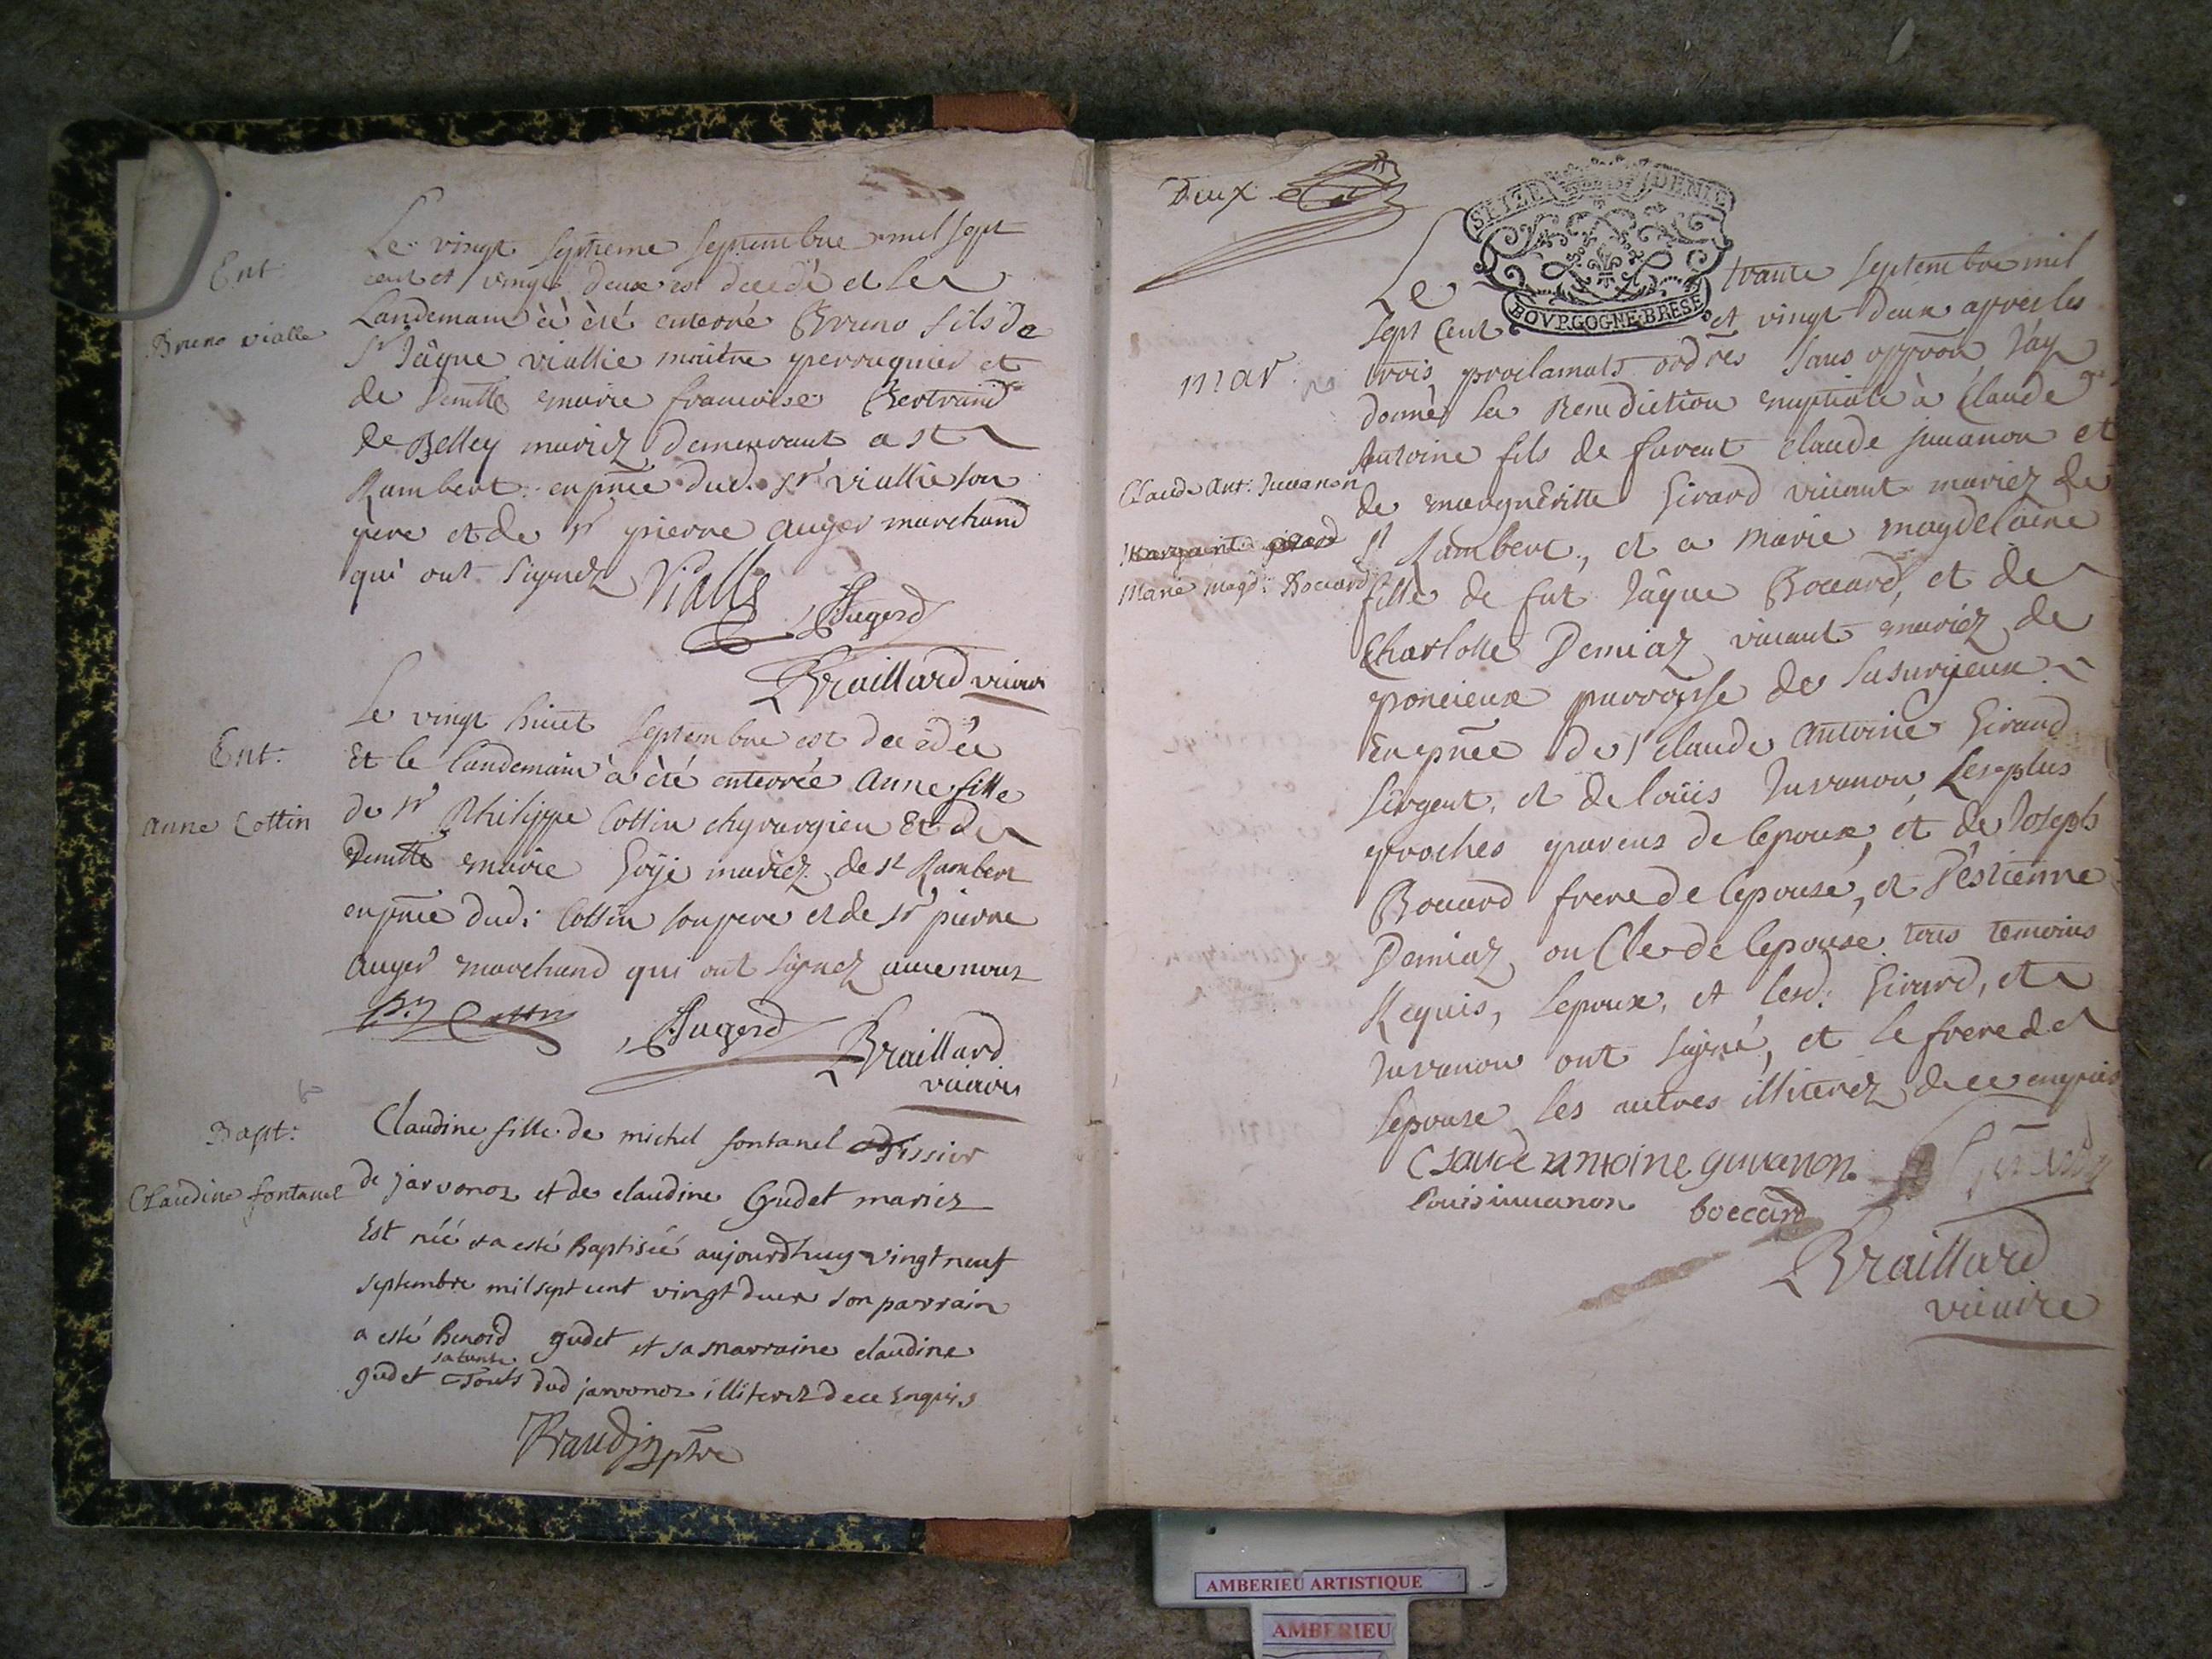 Ent:
Bruno vialle
Le vingt septieme septembre mil sept
cent et vingt deux est decedé et le
Landemain à été enterré Bruno fils de
Sr Jâque viallie maitre perruquier et
de Demlle marie francoise Bertrand
de Belley mariez demeurant a st
Rambert. en pñce dud. sr viallie son
pere et de sr pierre auger marchand
qui ont signez Vialle
Augerd
Braillard vicaire
Ent:
anne Cottin
Le vingt huict septembre est decedée
Et le landemain à été enterrée anne fille
de sr Philippe Cottin chyrurgien Et de
Demlle marie mariez de st Rambert
en pñce dud: Cottin son pere et de sr pierre
Auger marchand qui ont signez avec nous
Cottin
Augerd
Braillard
vicaire
Bapt:
Claudine fontanel
Claudine fille de michel fontanel tissier
de jarvonoz et de claudine Gudet mariez
Est néé et a esté Baptiséé aujourdhuy vingt neuf
septembre mil sept cent vingt deux son parrain
a esté Benoid gudet et sa marraine claudine
sa tante
gudet touts dud jarvonoz illiterez de ce Enquis
Braudin ptre
Deux
SEIZE DENIE
BOVRGOGNE BRESE
Le trante septembre mil
sept Cent et vingt deux apres les
mar:
trois proclamats ord res sans oppõn J'ay
donné la Benediction nuptiale à Claude
Antoine fils de furent Claude Juuanon et
Claude Ant: Juuanon
de margueritte Girard viuant mariez de
Margarite girard
St Rambert, et a Marie magdelaine
Marie Magd: Bouard
fille de fut Jâque Bouard, et de
Charlotte Demiaz viuant mariez de
poncieux parroisse de
En pñce de Sr claude antoine Girard
sergent, et de loüis Juvanon Les plus
proches parens de lepoux, et de Joseph
Bouard frere de lepouse, et d'estienne
Demiaz oncle de lepouse tous temoins
Requis, Lepoux, et lesd: Girard, et
Juvanon ont signé, et le frere de
lepouse les autres illiterez de ce enquis
Claude antoine guvanon
Girard
louis iuuanon boccard
Braillard
vicaire
AMBERIEU ARTISTIQUE
AMBERIEU